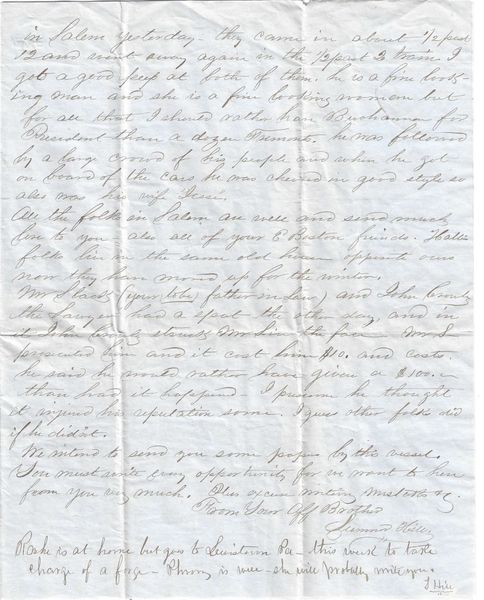 in Salem yesterday - they came in about 1/2 past
12 and went away again in the 1/2 past 2 train I
got a good peep at both of them. he is a fine look-
ing man and she is a fine looking woman but
for all that I should rather have Buchannan for
President than a dozen Fremonts. he was followed
by a large crowd of his people and when he got
on board of the cars he was cheered in good style so
also was his wife Jesse.
All the folks in Salem are well and send much
love to you - also all of your E Boston friends.
folks live in the same old house opposite ours
now they have moved up for the winter.
Mr (your to be) father in law) and John
the Lawyer had a spat the other day, and in
it John struck Mr in the face Mr S
prosecuted him and it cost him $10. and costs.
he said he would rather have given a $100.
than had it happened I presume he thought
it injured his reputation some. I guess other folks did
if he didn't.
We intend to send you some papers by this vessel.
You must write every opportunity for we want to hear
from you very much. Plus excuse writing mistakes &c.
From Your Aff Brother
Hill.
is at home but goes to Lewistown Pa - this week to take
charge of a forge - is well - she will probably write you.
Hill